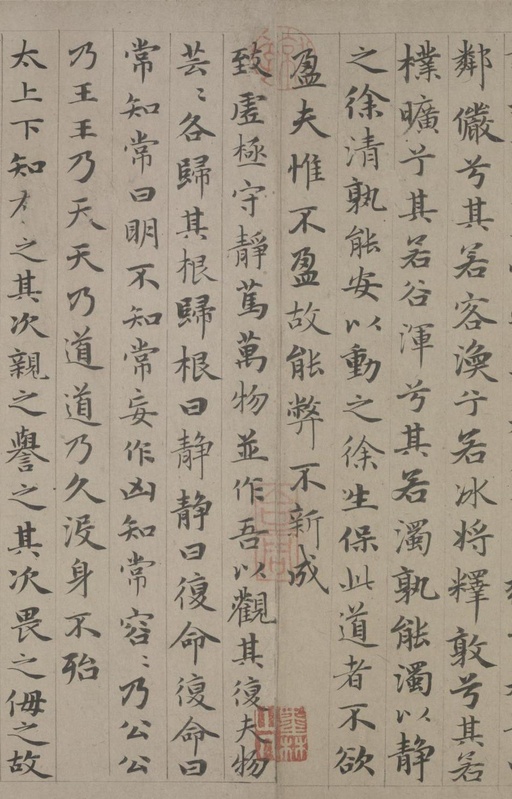 鄰儼兮其若客渙兮若冰將釋敦兮其若
樸曠兮其若谷渾兮其若濁孰能濁以靜
之徐清孰能安以動之徐生保此道者不欲
盈夫惟不盈故能弊不新成
致虛極守靜篤萬物並作吾以觀其復夫物
芸〻各歸其根歸根曰靜靜曰復命復命曰
常知常曰明不知常妄作凶知常容〻乃公公
乃王王乃天天乃道道乃久沒身不殆
太上下知之其次親之譽之其次畏之侮之故